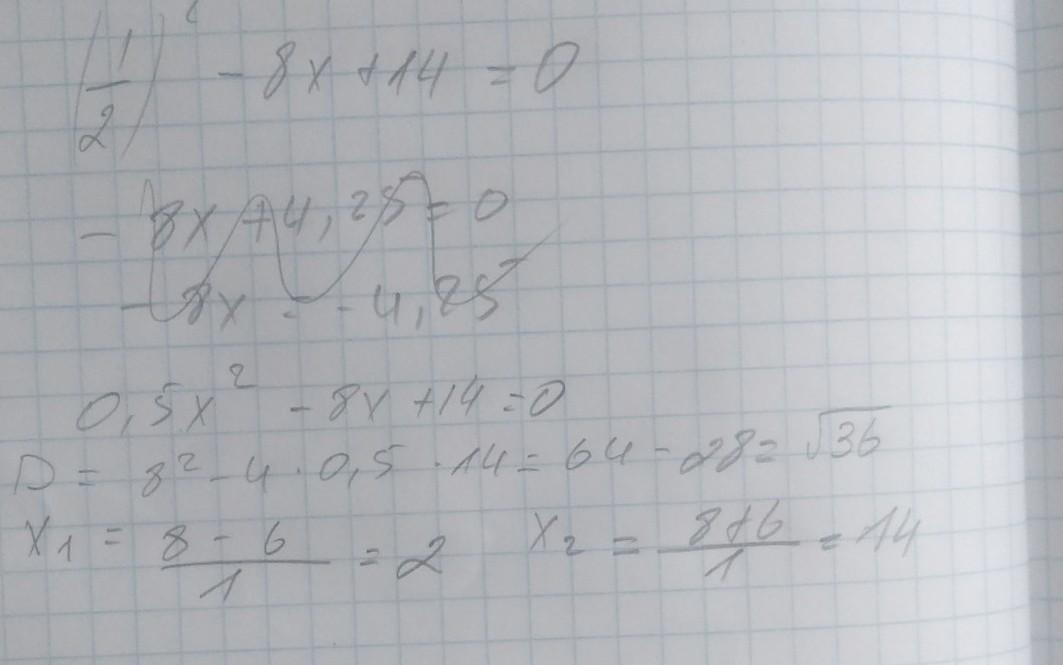 (1/2)² - 8x + 14 = 0
- 8x + 4,25 = 0
- 8x = - 4,25
0,5x² - 8x + 14 = 0
D = 8² - 4 · 0,5 · 14 = 64 - 28 = √36
x₁ = (8 - 6)/1 = 2 x₂ = (8 + 6)/1 = 14